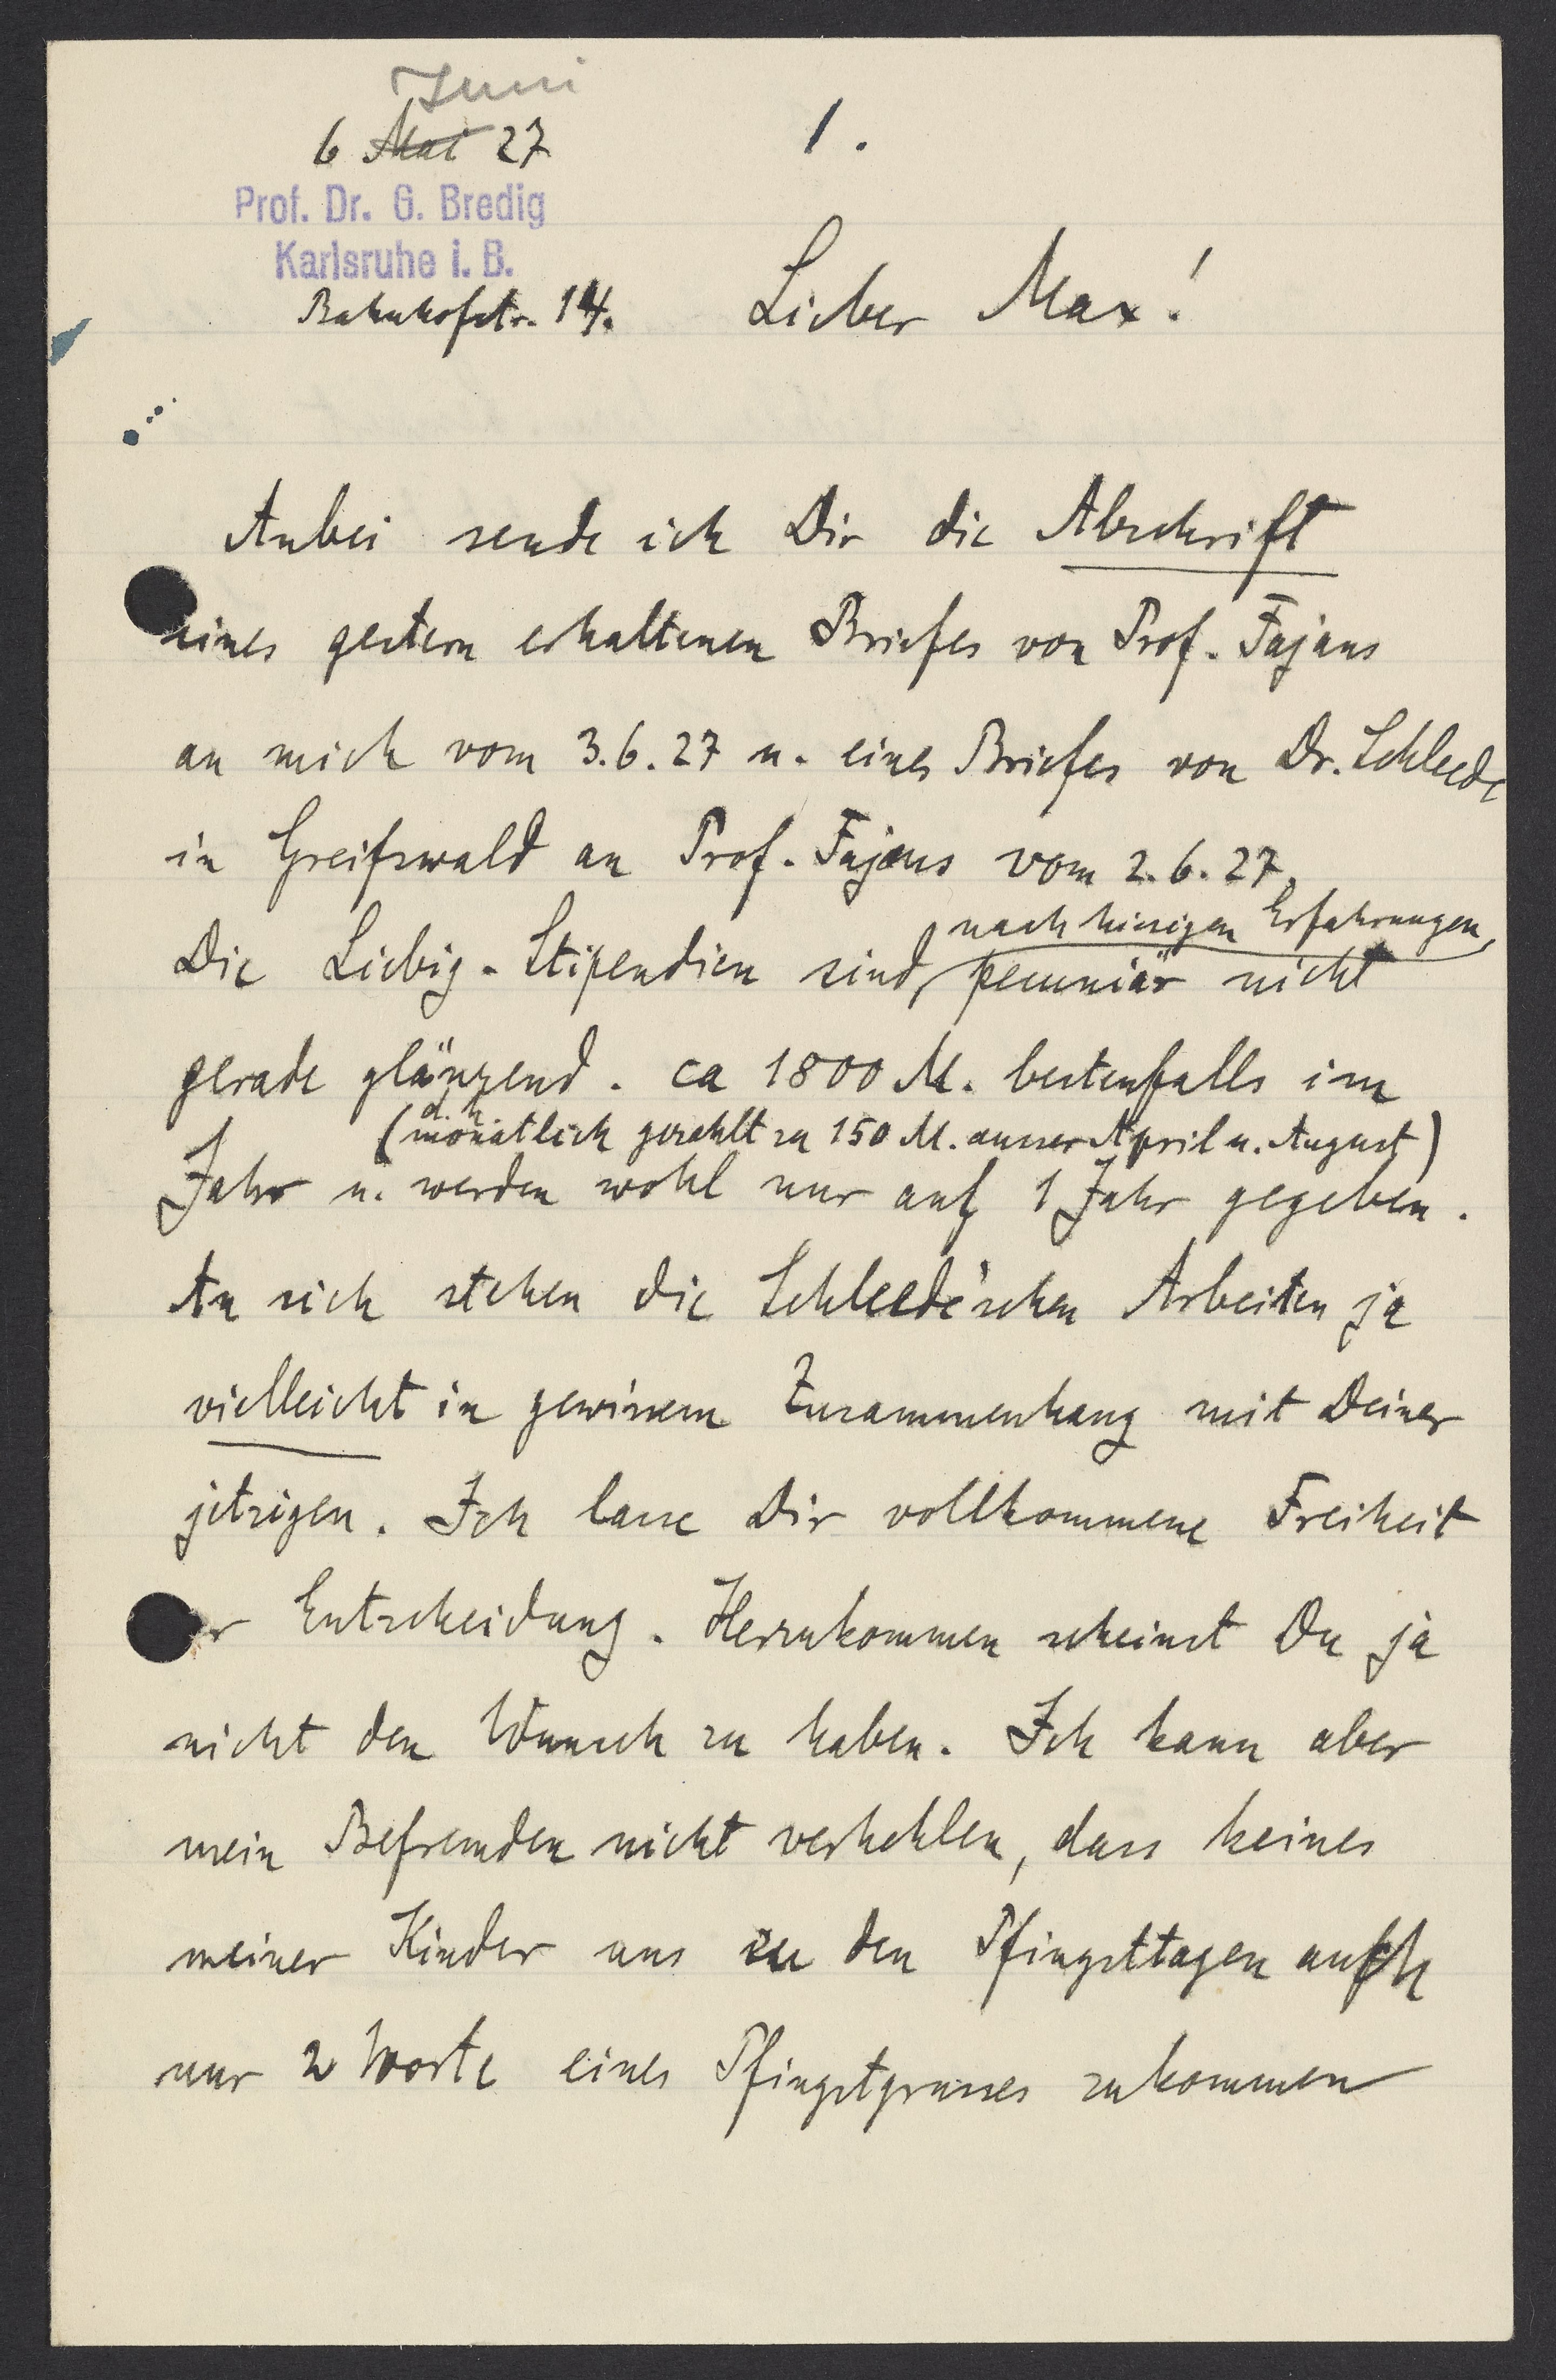 Juni
6 Mai 27
1.
Prof. Dr. G. Bredig
Karlsruhe i. B.
Bahnhofstr. 14.
Lieber Max!
Anbei sende ich Dir die Abschrift
eines gestern erhaltenen Briefes von Prof. Fajans
an mich vom 3.6.27 u. eines Briefes von Dr. Schleede
in Greifswald an Prof. Fajans vom 2.6.27.
nach hiesigen Erfahrungen,
Die Liebig-Stipendien sind, pecuniär nicht
gerade glänzend. ca 1800 M. bestenfalls im
d. h.
(monatlich gezahlt zu 150 M. ausser April u. August)
Jahr u. werden wohl nur auf 1 Jahr gegeben.
An sich stehen die Schleede'schen Arbeiten ja
vielleicht in gewissem Zusammenhang mit Deiner
jetzigen. Ich lasse Dir vollkommene Freiheit
er Entscheidung. Herzukommen scheinst Du ja
nicht den Wunsch zu haben. Ich kann aber
mein Befremden nicht verhehlen, dass keines
meiner Kinder uns zu den Pfingsttagen auch
nur 2 Worte eines Pfingstgrusses zukommen